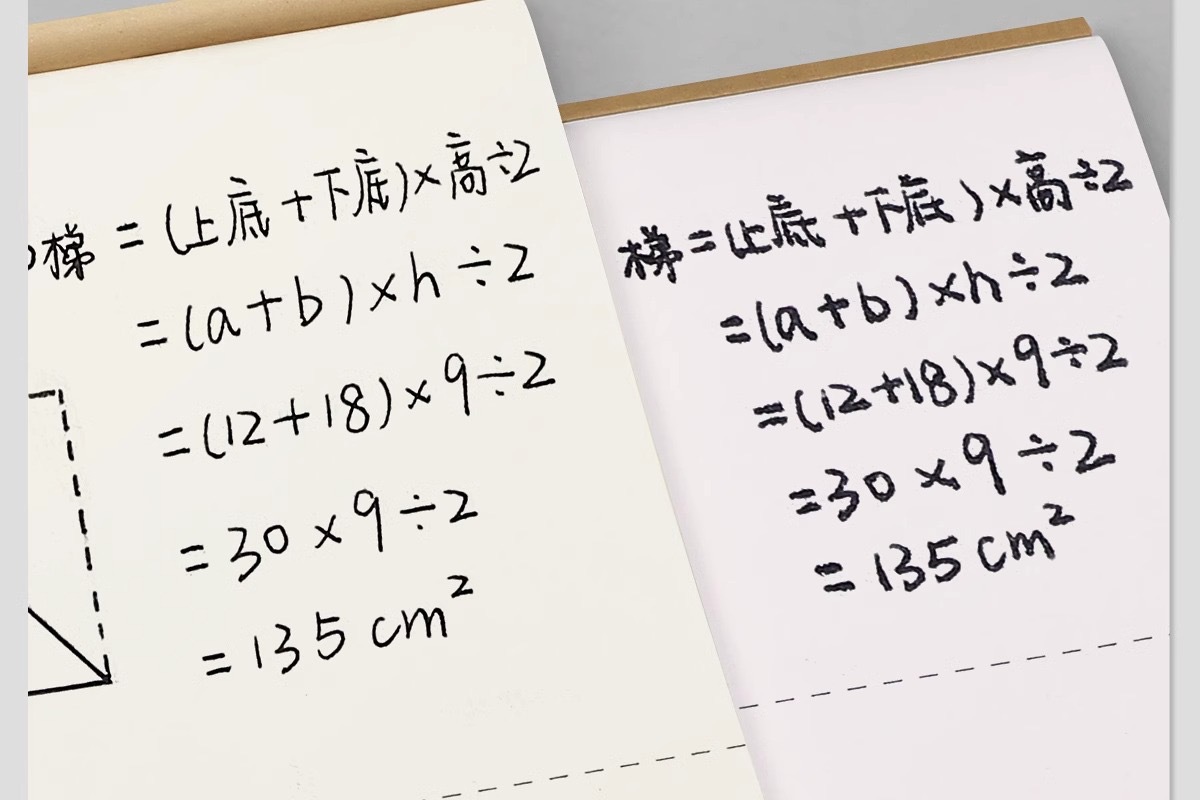 梯 = (上底 + 下底) × 高 ÷ 2
= (a + b) × h ÷ 2
= (12 + 18) × 9 ÷ 2
= 30 × 9 ÷ 2
= 135 cm²
梯 = (上底 + 下底) × 高 ÷ 2
= (a + b) × h ÷ 2
= (12 + 18) × 9 ÷ 2
= 30 × 9 ÷ 2
= 135 cm²